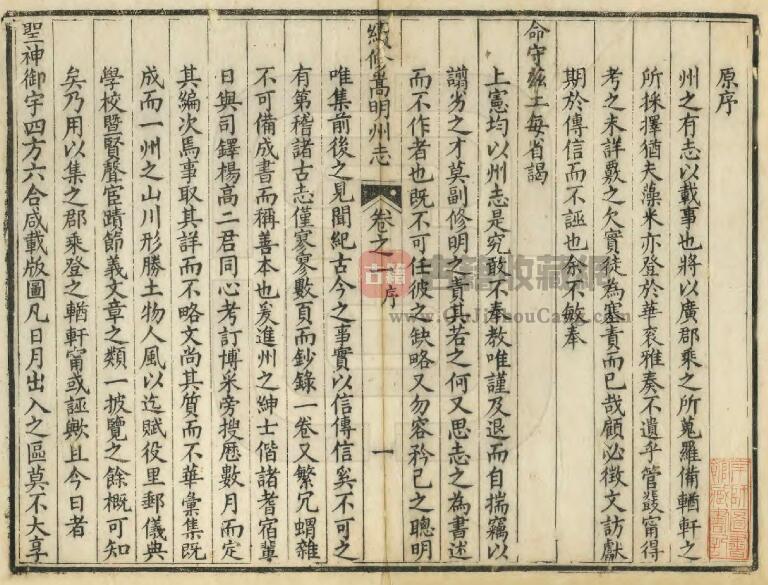 原序
州之有志以載事也將以廣郡乘之所蒐羅備輶軒之
所採擇猶夫藻米亦登於華袞雅奏不遺乎管籤甯得
考之未詳覈之欠實徒為塞責而已哉顧必徵文訪獻
期於傳信而不誣也余不敏奉
命守茲土每省謁
上憲均以州志是究敢不奉教唯謹及退而自揣竊以
譾劣之才莫副修明之責其若之何又思志之為書述
而不作者也既不可任彼之缺略又勿容矜己之聰明
續修嵩明州志
卷之一序
一
唯集前後之見聞紀古今之事實以信傳信奚不可之
有第稽諸古志僅寥寥數頁而鈔錄一卷又繁冗蝟雜
不可備成書而稱善本也爰進州之紳士偕諸耆宿輩
日與司鐸楊高二君同心考訂博采旁搜歷數月而定
其編次焉事取其詳而不略文尚其質而不華彙集既
成而一州之山川形勝土物人風以迄賦役里郵儀典
學校暨賢聲宦蹟節義文章之類一披覽之餘概可知
矣乃用以集之郡乘登之輶軒甯或誣歟且今日者
聖神御宇四方六合咸載版圖凡日月出入之區莫不大享
古籍
古籍收藏網
www.GuJiShouCang.Com